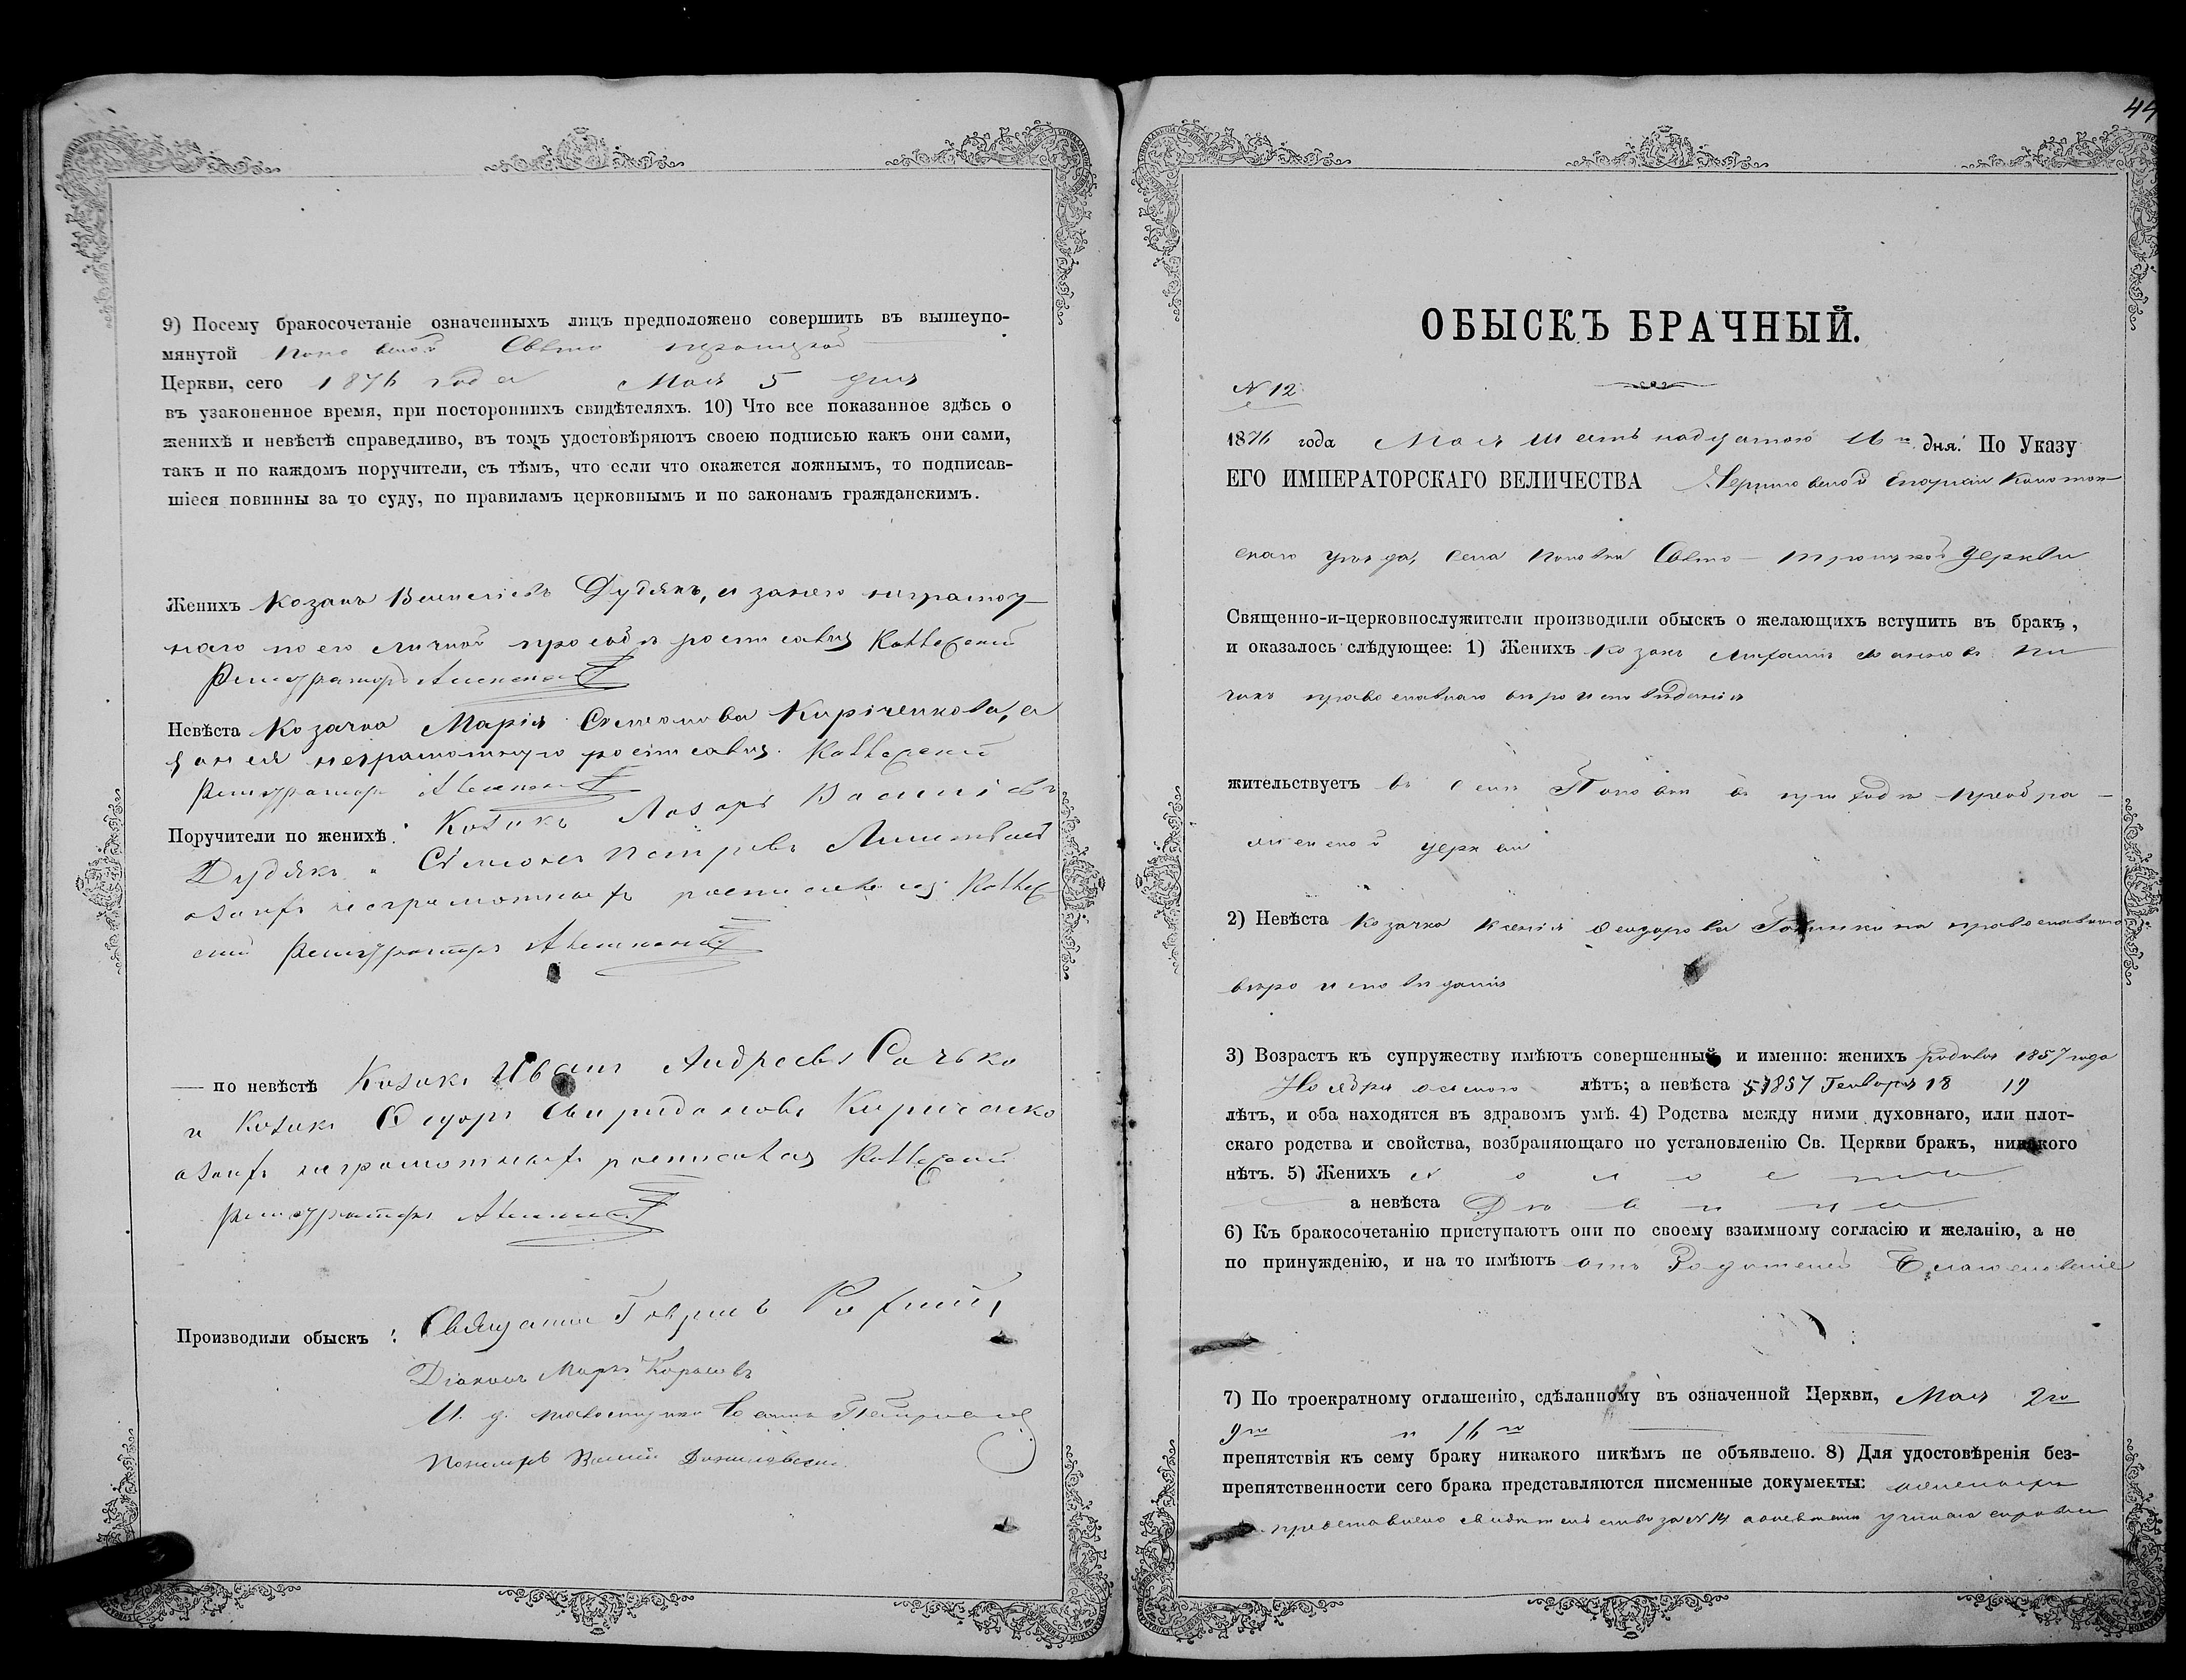 9) Посему бракосочетаніе означенныхъ лицъ предположено совершить въ вышеупо-
мянутой Свято троицкой
Церкви, сего 1876 года Мая 5 дня
въ узаконенное время, при постороннихъ свидѣтеляхъ. 10) Что все показанное здѣсь о
женихѣ и невѣстѣ справедливо, въ томъ удостовѣряютъ своею подписью какъ они сами,
такъ и по каждомъ поручители, съ тѣмъ, что если что окажется ложнымъ, то подписав-
шіеся повинны за то суду, по правиламъ церковнымъ и по законамъ гражданскимъ.
Женихъ Козакъ Дудякъ, а занего неграмот-
наго по его личной просьбѣ росписався Коллежскій
Регистраторъ
Невѣста Козачка Марія Семенова Киріченкова, а
занея неграмотную росписався Коллежскій
Регистраторъ
Поручители по женихѣ: Козакъ Лазарь Васильевъ
Дудякъ и Семенъ Петровъ
азаихъ неграмотныхъ росписався Коллеж-
скій Регистраторъ
— по невѣстѣ Козакъ Иванъ Андреевъ Сачъко
и Козакъ Федоръ Свиридоновъ Кириченко
азаихъ неграмотныхъ росписався Коллежскій
Регистраторъ
Производили обыскъ: Священникъ Гавріилъ
Діаконъ Маркъ
И. д.
Пономарь Василій Даниловскій
44
ОБЫСКЪ БРАЧНЫЙ.
N 12
1876 года Мая шестьнадцатого 16го дня. По Указу
ЕГО ИМПЕРАТОРСКАГО ВЕЛИЧЕСТВА Черниговской Епархіи Конотоп-
скаго уѣзда, села Поповки Свято-троицкой Церкви
Священно-и-церковнослужители производили обыскъ о желающихъ вступить въ бракъ,
и оказалось слѣдующее: 1) Женихъ козакъ Михаилъ
православнаго вѣроисповѣданія
жительствуетъ въ селѣ Поповки въ приходѣ преобра-
женской церкви
2) Невѣста Козачка Ксенія Феодорова православного
вѣроисповѣданія
3) Возрастъ къ супружеству имѣютъ совершенный и именно: женихъ родився 1857 года
Ноября осьмого лѣтъ; а невѣста 1857 Генваря 18 19
лѣтъ, и оба находятся въ здравомъ умѣ. 4) Родства между ними духовнаго, или плот-
скаго родства и свойства, возбраняющаго по установленію Св. Церкви бракъ, никакого
нѣтъ. 5) Женихъ холостъ
а невѣста Дѣвица
6) Къ бракосочетанію приступаютъ они по своему взаимному согласію и желанію, а не
по принужденію, и на то имѣютъ отъ Родителей Благословеніе
7) По троекратному оглашенію, сдѣланному въ означенной Церкви, Мая 2го
9го и 16го
препятствія къ сему браку никакого никѣмъ не объявлено. 8) Для удостовѣренія без-
препятственности сего брака представляются писменные документы:
представлено свидѣтельство за N 14 аоневѣстѣ учинена справка